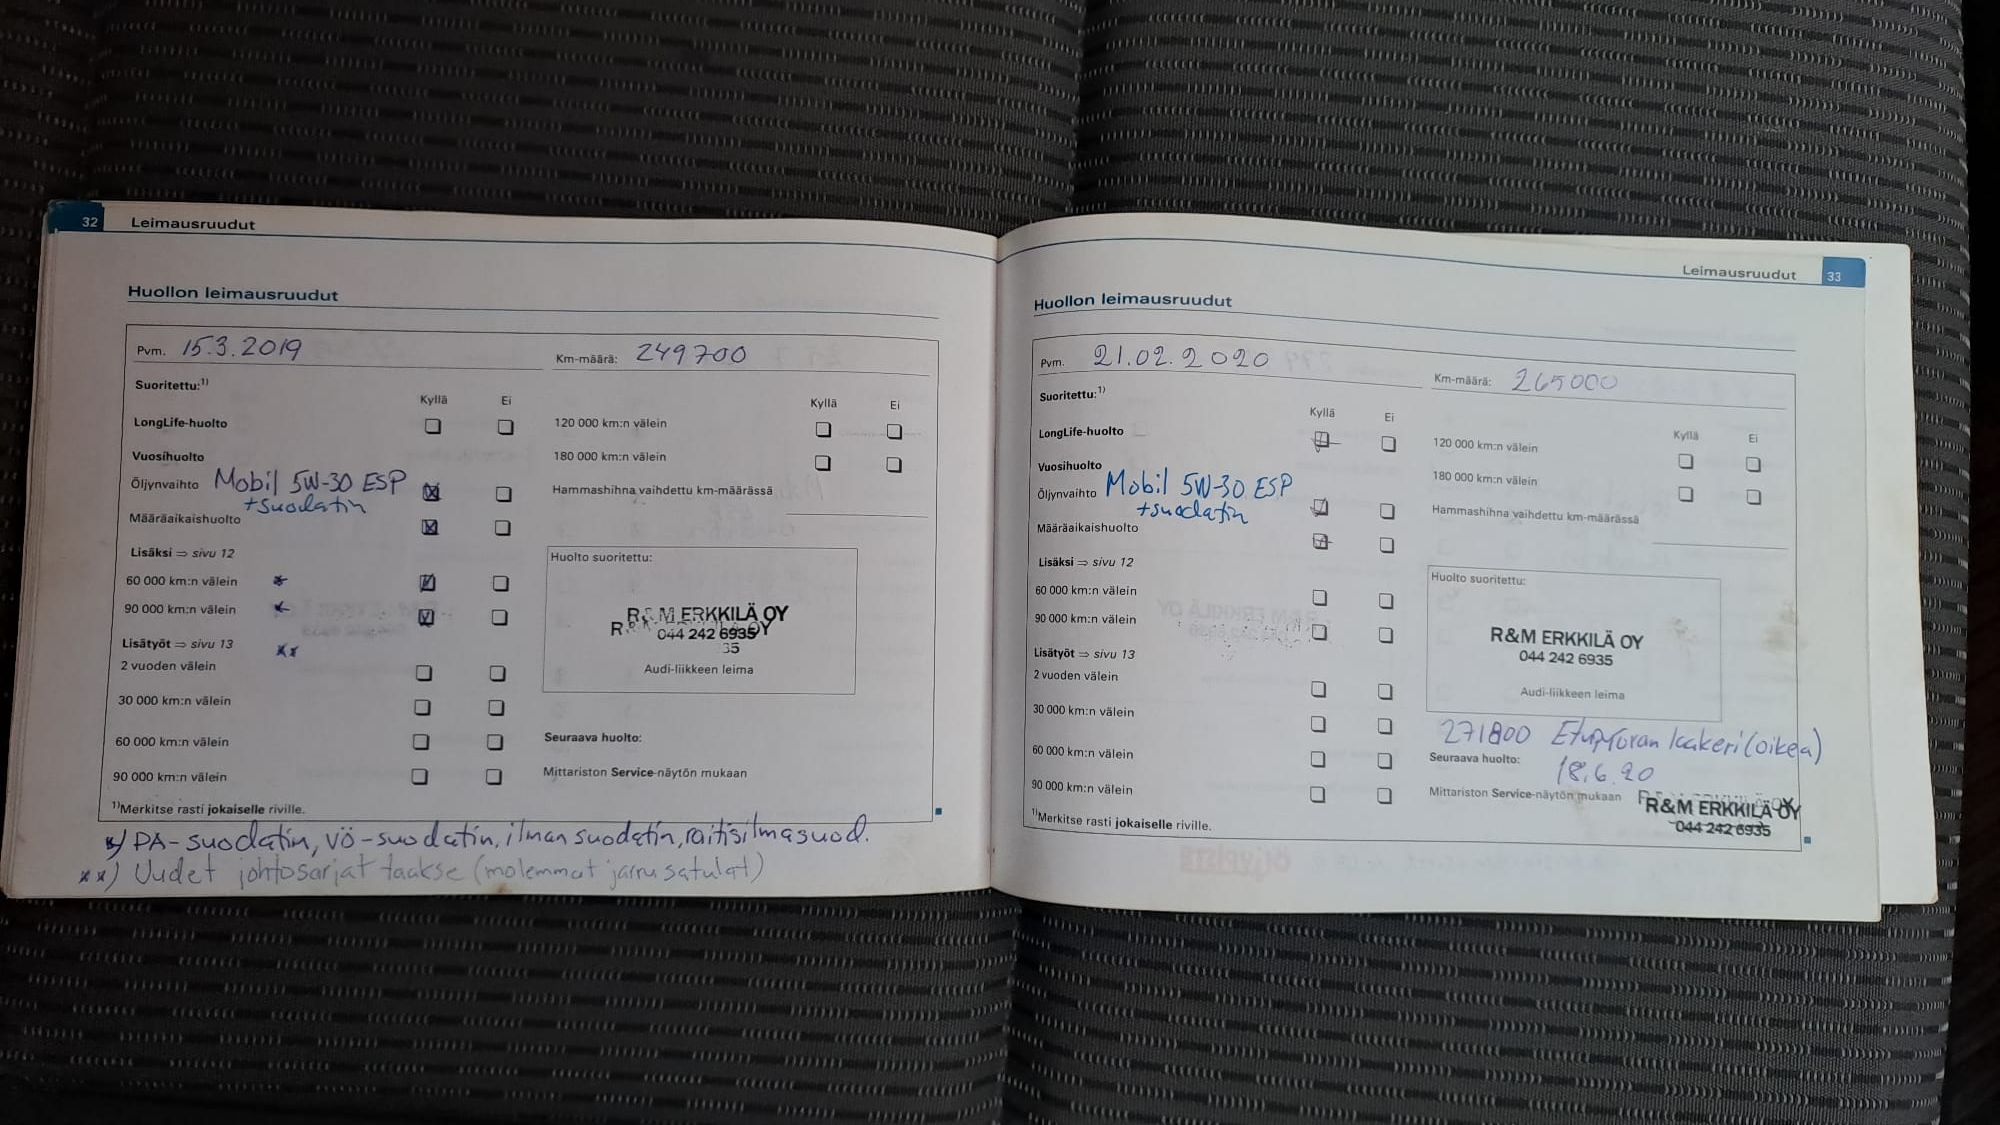 32 Leimausruudut
Huollon leimausruudut
Pvm. 15.3.2019 Km-määrä: 249700
Suoritettu:1)
Kyllä Ei Kyllä Ei
LongLife-huolto 120 000 km:n välein
Vuosihuolto 180 000 km:n välein
Öljynvaihto Mobil 5W-30 ESP Hammashihna vaihdettu km-määrässä
+suodatin
Määräaikaishuolto
Lisäksi ⇒ sivu 12 Huolto suoritettu:
60 000 km:n välein *
90 000 km:n välein *
R&M ERKKILÄ OY
044 242 6935
Lisätyöt ⇒ sivu 13 **
2 vuoden välein Audi-liikkeen leima
30 000 km:n välein
60 000 km:n välein Seuraava huolto:
90 000 km:n välein Mittariston Service-näytön mukaan
1)Merkitse rasti jokaiselle riville.
*) PA-suodatin, VÖ-suodatin, ilman suodatin, raitisilmasuod.
**) Uudet johtosarjat taakse (molemmat jarru satulat)
Leimausruudut 33
Huollon leimausruudut
Pvm. 21.02.2020 Km-määrä: 265000
Suoritettu:1)
Kyllä Ei Kyllä Ei
LongLife-huolto 120 000 km:n välein
Vuosihuolto 180 000 km:n välein
Öljynvaihto Mobil 5W-30 ESP Hammashihna vaihdettu km-määrässä
+suodatin
Määräaikaishuolto
Lisäksi ⇒ sivu 12 Huolto suoritettu:
60 000 km:n välein
90 000 km:n välein
R&M ERKKILÄ OY
044 242 6935
Lisätyöt ⇒ sivu 13
2 vuoden välein Audi-liikkeen leima
30 000 km:n välein
271800 Etupyörän laakeri (oikea)
60 000 km:n välein Seuraava huolto:
18.6.20
90 000 km:n välein Mittariston Service-näytön mukaan
R&M ERKKILÄ OY
044 242 6935
1)Merkitse rasti jokaiselle riville.